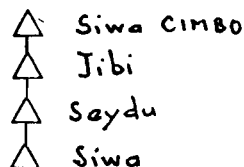 Siwa CIMBO
Jibi
Seydu
Siwa